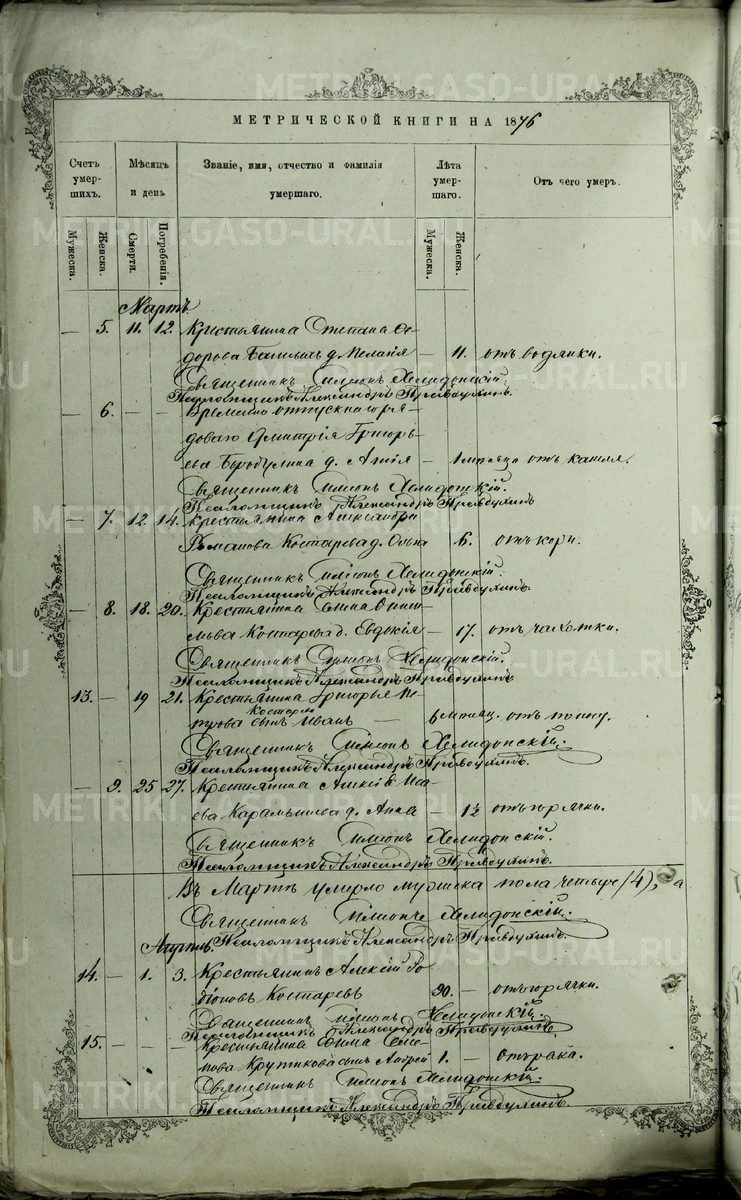 МЕТРИЧЕСКОЙ КНИГИ НА 1876
Счетъ умерших. Мѣсяцъ и день Званіе, имя, отчество и фамилія умершаго. Лѣта умершаго. Отъ чего умеръ.
Мужеска. Женска. Смерти. Погребенія. Мужеска. Женска.
Мартъ
— 5. 11. 12. Крестьянина Степана Ѳе-
дорова д. Пелагія — 11. отъ водянки.
Священникъ Симеонъ Хелидонскій.
Псаломщикъ Александръ Правдухинъ.
— 6. — — Временно отпускного ря-
доваго Димитрія Григорь-
ева Бородулина д. Анна — 1 мѣсяца отъ кашля.
Священникъ Симеонъ Хелидонскій.
Псаломщикъ Александръ Правдухинъ
— 7. 12 14. Крестьянина Александра
Романова Костарева д. Ольга 6. отъ кори.
Священникъ Симеонъ Хелидонскій.
Псаломщикъ Александръ Правдухинъ.
— 8. 18. 20. Крестьянина
Костарева д. Евдокія — 17. отъ чахотки.
Священникъ Симеонъ Хелидонскій.
Псаломщикъ Александръ Правдухинъ
13. — 19 21. Крестьянина Григорья Пе-
трова Костарева сынъ Иванъ — 6 мѣсяц. отъ поносу.
Священникъ Симеонъ Хелидонскій.
Псаломщикъ Александръ Правдухинъ.
— 9. 25 27. Крестьянина Алексѣя Иса-
ева Карамышева д. Анна — 1½ отъ горячки.
Священникъ Симеонъ Хелидонскій.
Псаломщикъ Александръ Правдухинъ.
Въ Мартѣ умерло мужеска пола четыре (4), а
Священникъ Симеонъ Хелидонскій.
Апрѣль. Псаломщикъ Александръ Правдухинъ.
14. — 1. 3. Крестьянинъ Алексѣй Ро-
діоновъ Костаревъ 90. — отъ горячки.
Священникъ Симеонъ Хелидонскій.
Псаломщикъ Александръ Правдухинъ
15. — — — Крестьянина Семе-
нова Крутикова сынъ Андрей 1. —
Священникъ Симеонъ Хелидонскій.
Псаломщикъ Александръ Правдухинъ.
METRIKI.GASO-URAL.RU